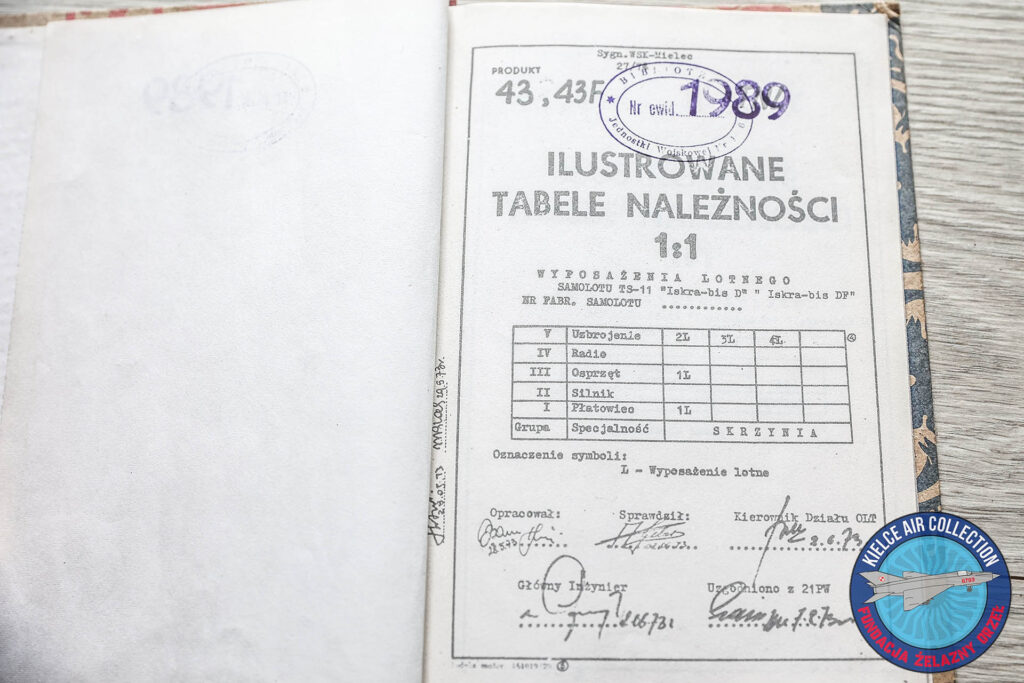 Sygn. WSK-Mielec
PRODUKT
43, 43F
BIBLIOTEKA
Nr ewid. 1989
Jednostki Wojskowej Nr
ILUSTROWANE
TABELE NALEŻNOŚCI
1:1
WYPOSAŻENIA LOTNEGO
SAMOLOTU TS-11 "Iskra-bis D" " Iskra-bis DF"
NR FABR. SAMOLOTU ............
V Uzbrojenie 2Ł 3Ł 4Ł
IV Radio
III Osprzęt 1Ł
II Silnik
I Płatowiec 1Ł
Grupa Specjalność SKRZYNIA
Oznaczenie symboli:
Ł - Wyposażenie lotne
Opracował: Sprawdził: Kierownik Działu OLT
2.6.73
Główny Inżynier Uzgodniono z 21PW
KIELCE AIR COLLECTION
0703
FUNDACJA ŻELAZNY ORZEŁ